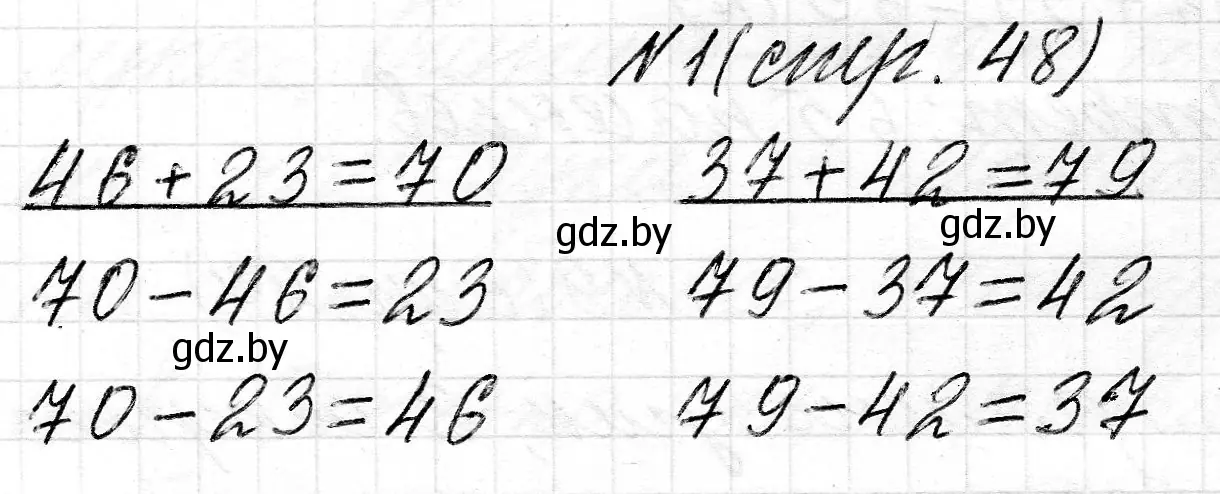 N 1 (стр. 48)
46 + 23 = 70
37 + 42 = 79
gdz.by
gdz.by
70 - 46 = 23
79 - 37 = 42
gdz.by
70 - 23 = 46
79 - 42 = 37